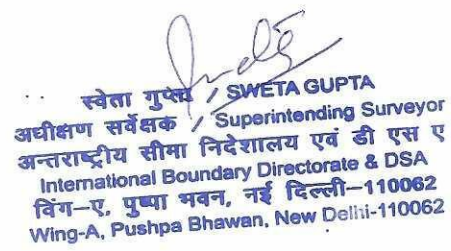 स्वेता गुप्ता / SWETA GUPTA
अधीक्षण सर्वेक्षक / Superintending Surveyor
अन्तराष्ट्रीय सीमा निदेशालय एवं डी एस ए
International Boundary Directorate & DSA
विंग-ए, पुष्पा भवन, नई दिल्ली-110062
Wing-A, Pushpa Bhawan, New Delhi-110062